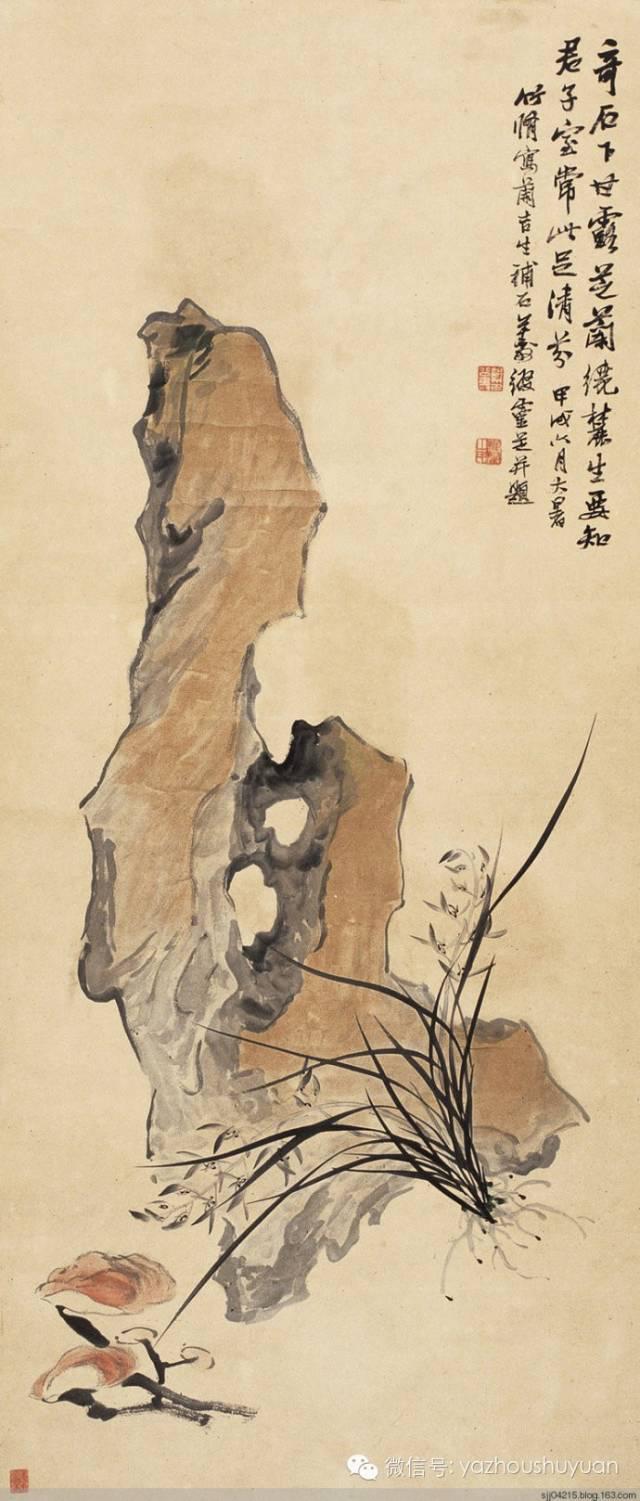 奇石下甘露芝蘭繞麓生要知
君子室常此足清芬 甲戌六月大暑
寫蘭吉生補石綴靈芝并題
微信号: yazhoushuyuan
sjj04215.blog.163.com